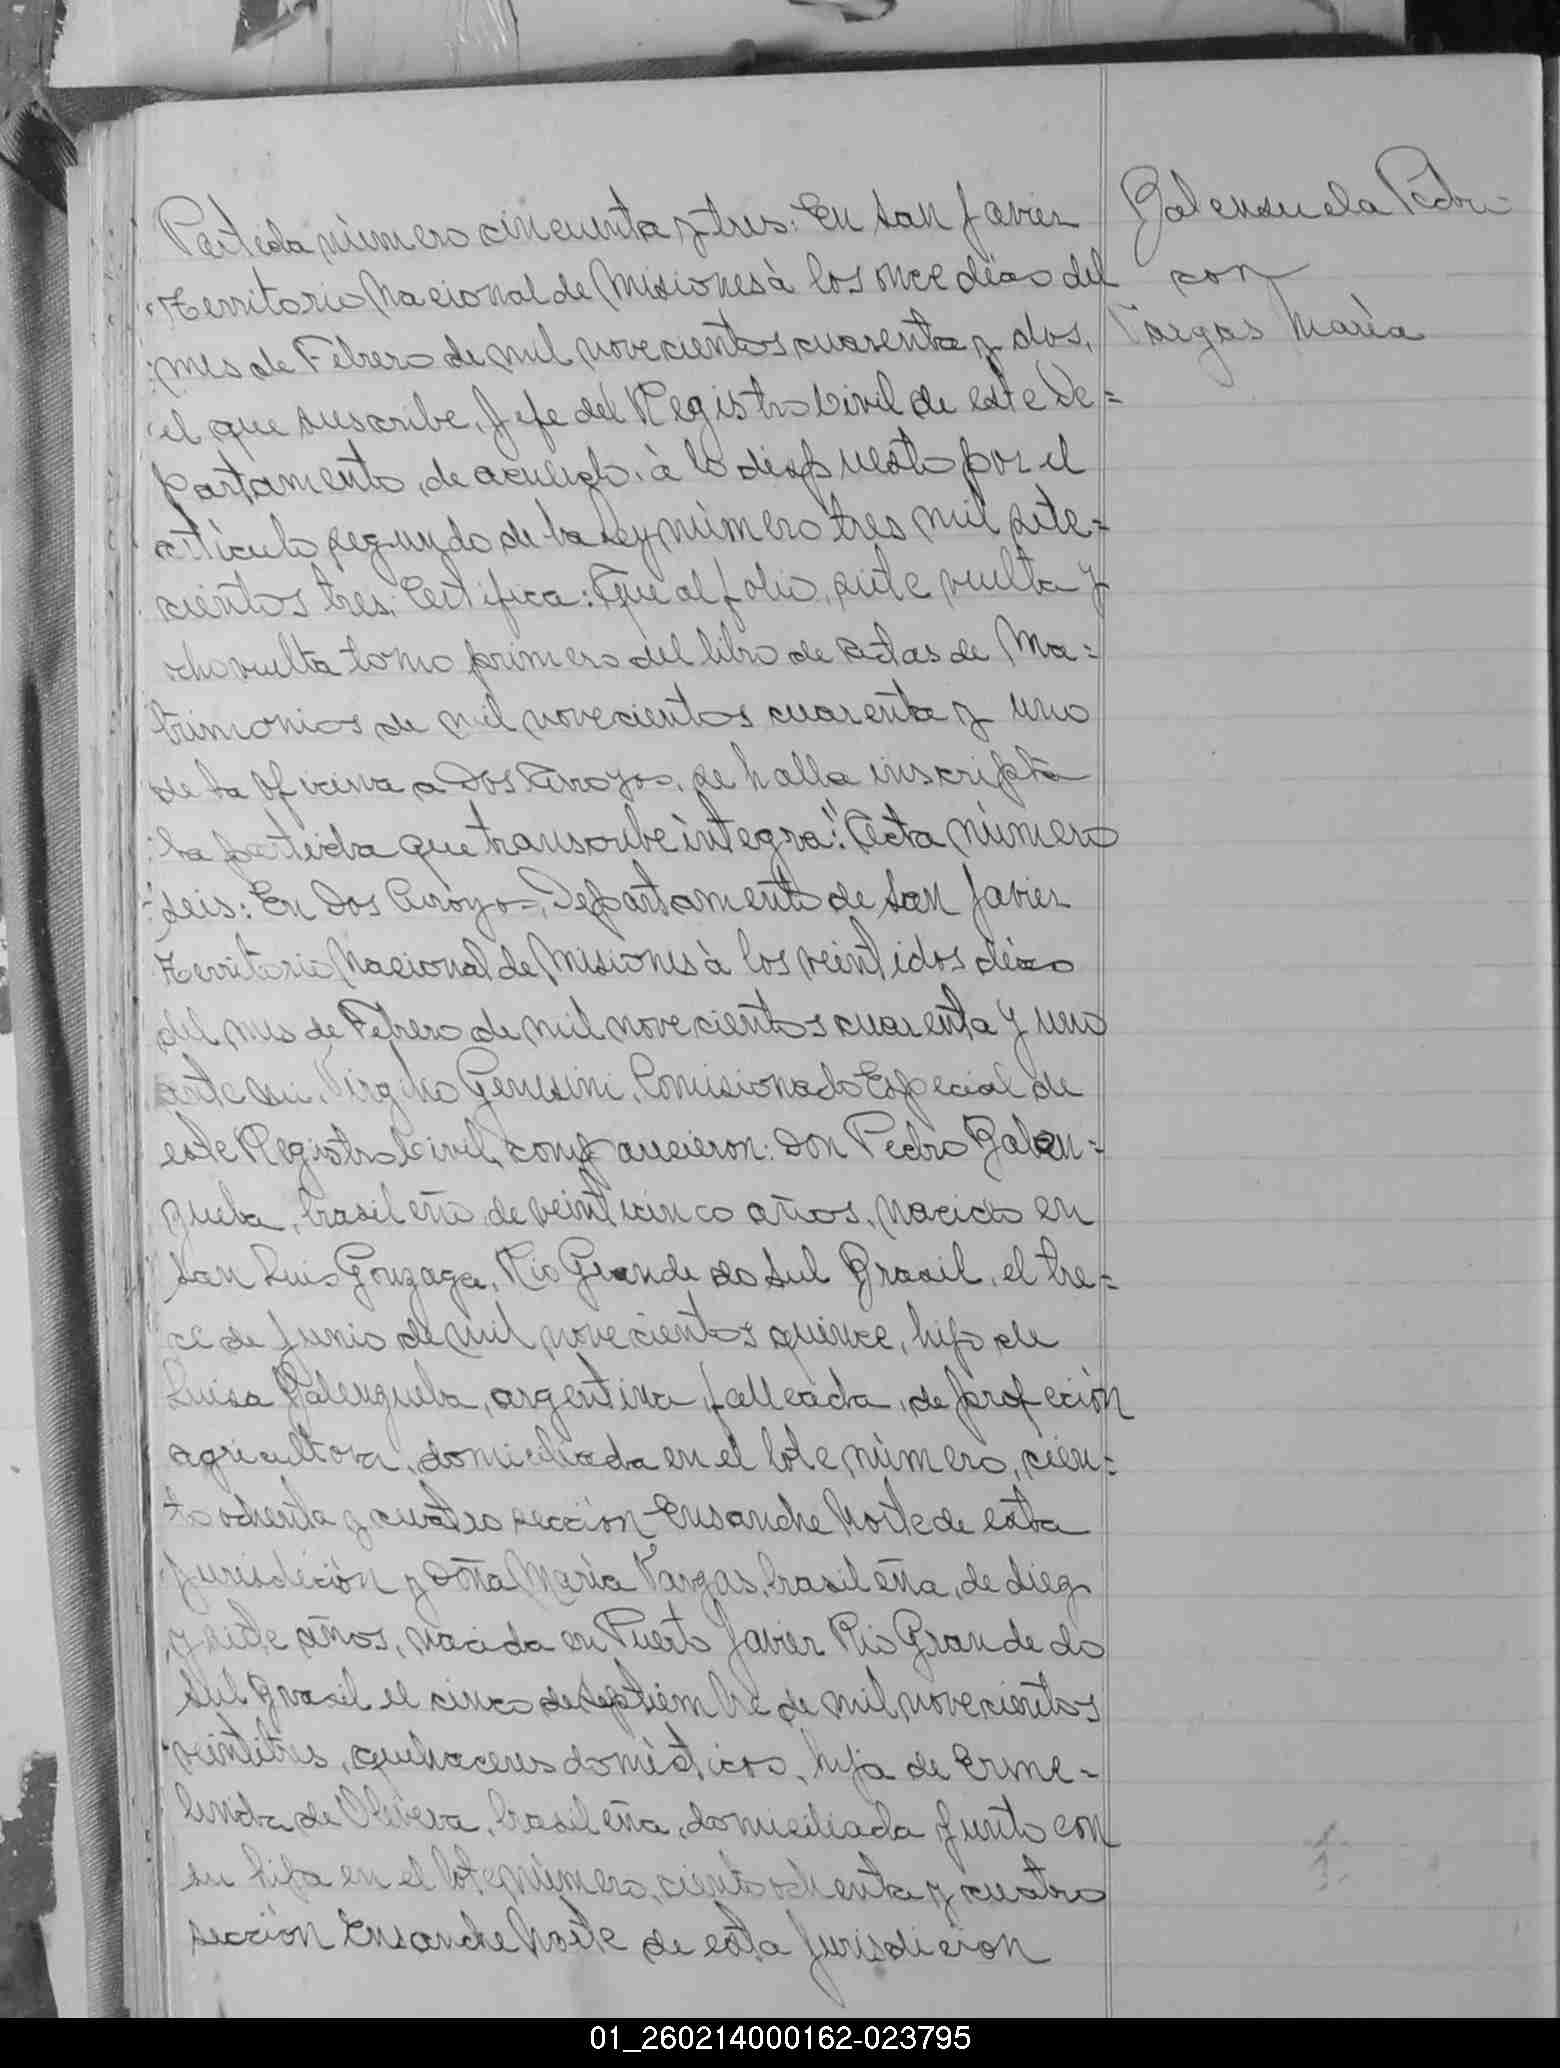 Partida número cincuenta y tres: En San Javier
Territorio Nacional de Misiones à los once dias del
mes de Febrero de mil novecientos cuarenta y dos,
el que suscribe, Jefe del Registro Civil de este De=
partamento, de acuerdo, à lo dispuesto por el
articulo segundo de la Ley número tres mil sete=
cientos tres; Certifica: Que al folio, siete vuelta y
ocho vuelta tomo primero del libro de actas de Ma=
trimonios de mil novecientos cuarenta y uno
de la oficina a Dos Arroyos, se halla inscripta
la partida que transcribe integra: "Acta número
seis: En Dos Arroyos, Departamento de San Javier
Territorio Nacional de Misiones à los veintidos dias
del mes de Febrero de mil novecientos cuarenta y uno
ante mi, Virginio Genesini, Comisionado Especial de
este Registro Civil, comparecieron: Don Pedro Balen=
zuela, brasileño, de veinticinco años, nacido en
San Luis Gonzaga, Rio Grande do Sul Brasil, el tre=
ce de Junio de mil novecientos quince, hijo de
Luisa Balenzuela, argentina, fallecida, de profeción
agricultora, domiciliada en el lote número, cien=
to ochenta y cuatro sección Ensanche Norte de esta
Jurisdición y Doña María Vargas, brasileña, de diez
y siete años, nacida en Puerto Javier Rio Grande do
Sul Brasil el cinco de Septiembre de mil novecientos
veintitres, quehaceres domésticos, hija de Erme=
linda de Olivera, brasileña, domiciliada junto con
su hija en el lote número, ciento ochenta y cuatro
sección Ensanche Norte de esta Jurisdicion
Balensuela Pedro
con
Vargas María
01_260214000162-023795